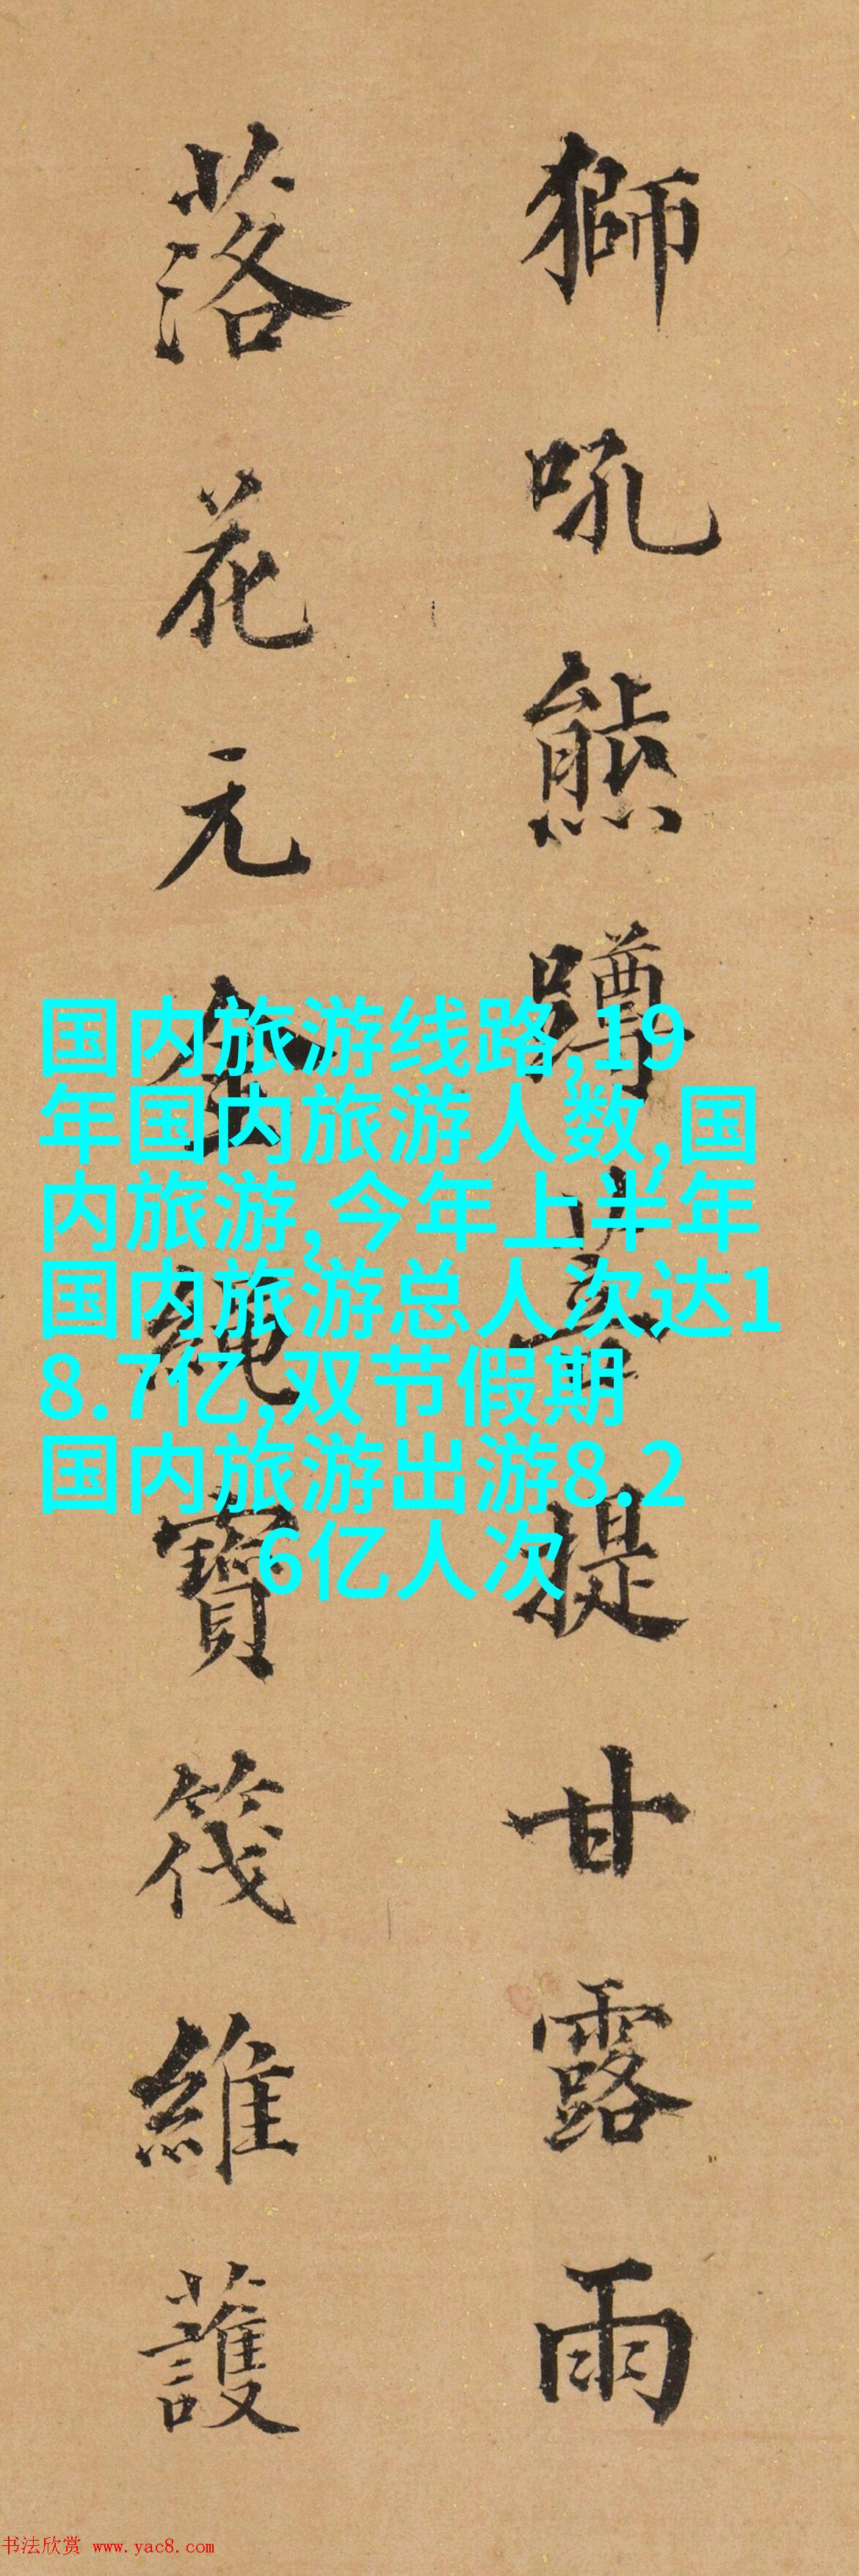 獅吼熊蹲提甘露雨
落花元金繩寶筏維護
国内旅游线路,19
年国内旅游人数,国
内旅游,今年上半年
国内旅游总人次达1
8.7亿,双节假期
国内旅游出游8.2
6亿人次
书法欣赏 www.yac8.com